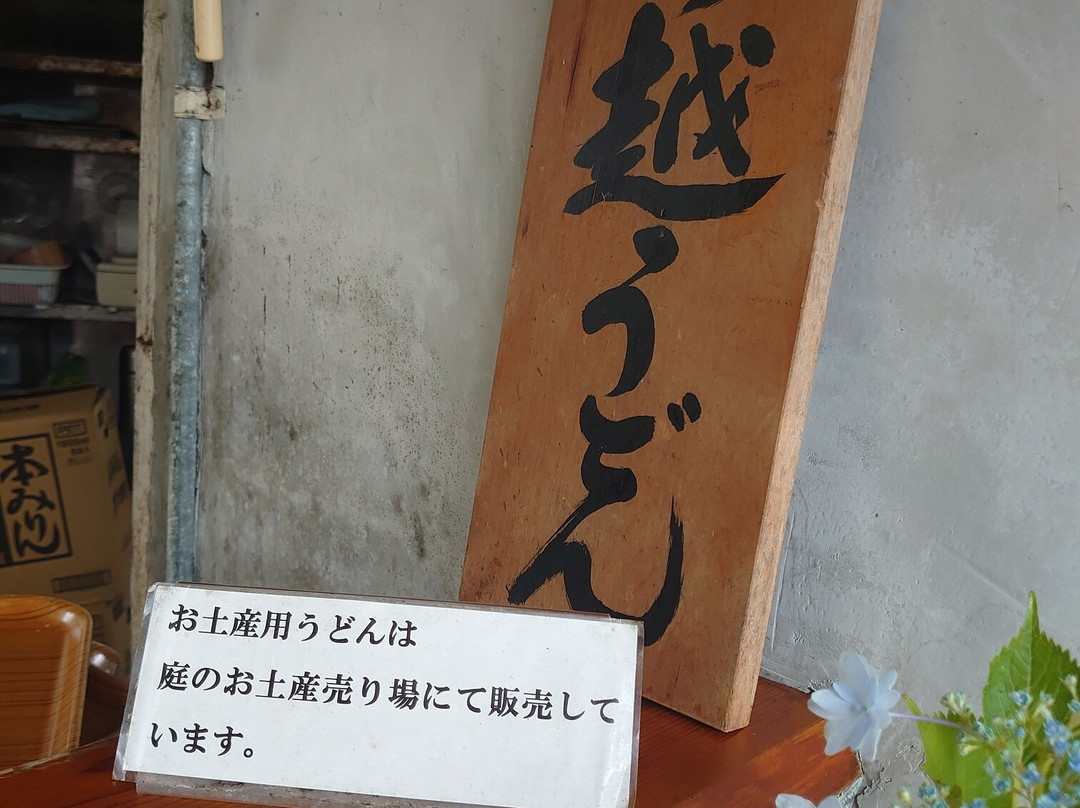 越うどん
お土産用うどんは
庭のお土産売り場にて販売して
います。
本みりん